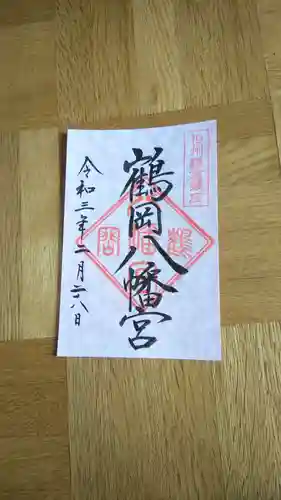 鶴岡八幡宮
令和三年二月二十八日